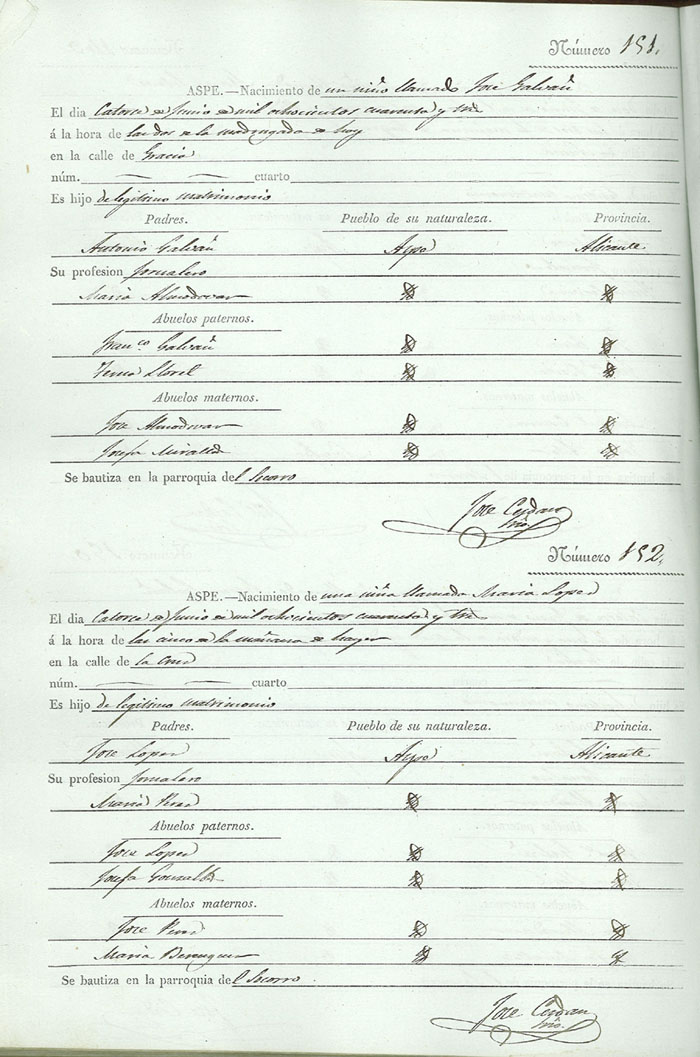 Número 151.
ASPE.—Nacimiento de un niño llamado José Galvañ
El dia Catorce de Junio de mil ochocientos cuarenta y tres
á la hora de las dos de la madrugada de hoy
en la calle de Gracia
núm. — — cuarto
Es hijo de legitimo matrimonio
Padres. Pueblo de su naturaleza. Provincia.
Antonio Galvañ Aspe Alicante
Su profesion Jornalero
Maria Almodovar
Abuelos paternos.
Franco. Galvañ
Llorel
Abuelos maternos.
Jose Almodovar
Josefa Miralles
Se bautiza en la parroquia del Socorro
Jose Cerdan
Srio.
Número 152.
ASPE.—Nacimiento de una niña llamada Maria Lopez
El dia Catorce de Junio de mil ochocientos cuarenta y tres
á la hora de las cinco de la mañana de
en la calle de la Cruz
núm. — — cuarto
Es hijo de legitimo matrimonio
Padres. Pueblo de su naturaleza. Provincia.
Jose Lopez Aspe Alicante
Su profesion Jornalero
Maria Perez
Abuelos paternos.
Jose Lopez
Josefa Gonzalez
Abuelos maternos.
Jose Perez
Maria Berenguer
Se bautiza en la parroquia del Socorro
Jose Cerdan
Srio.